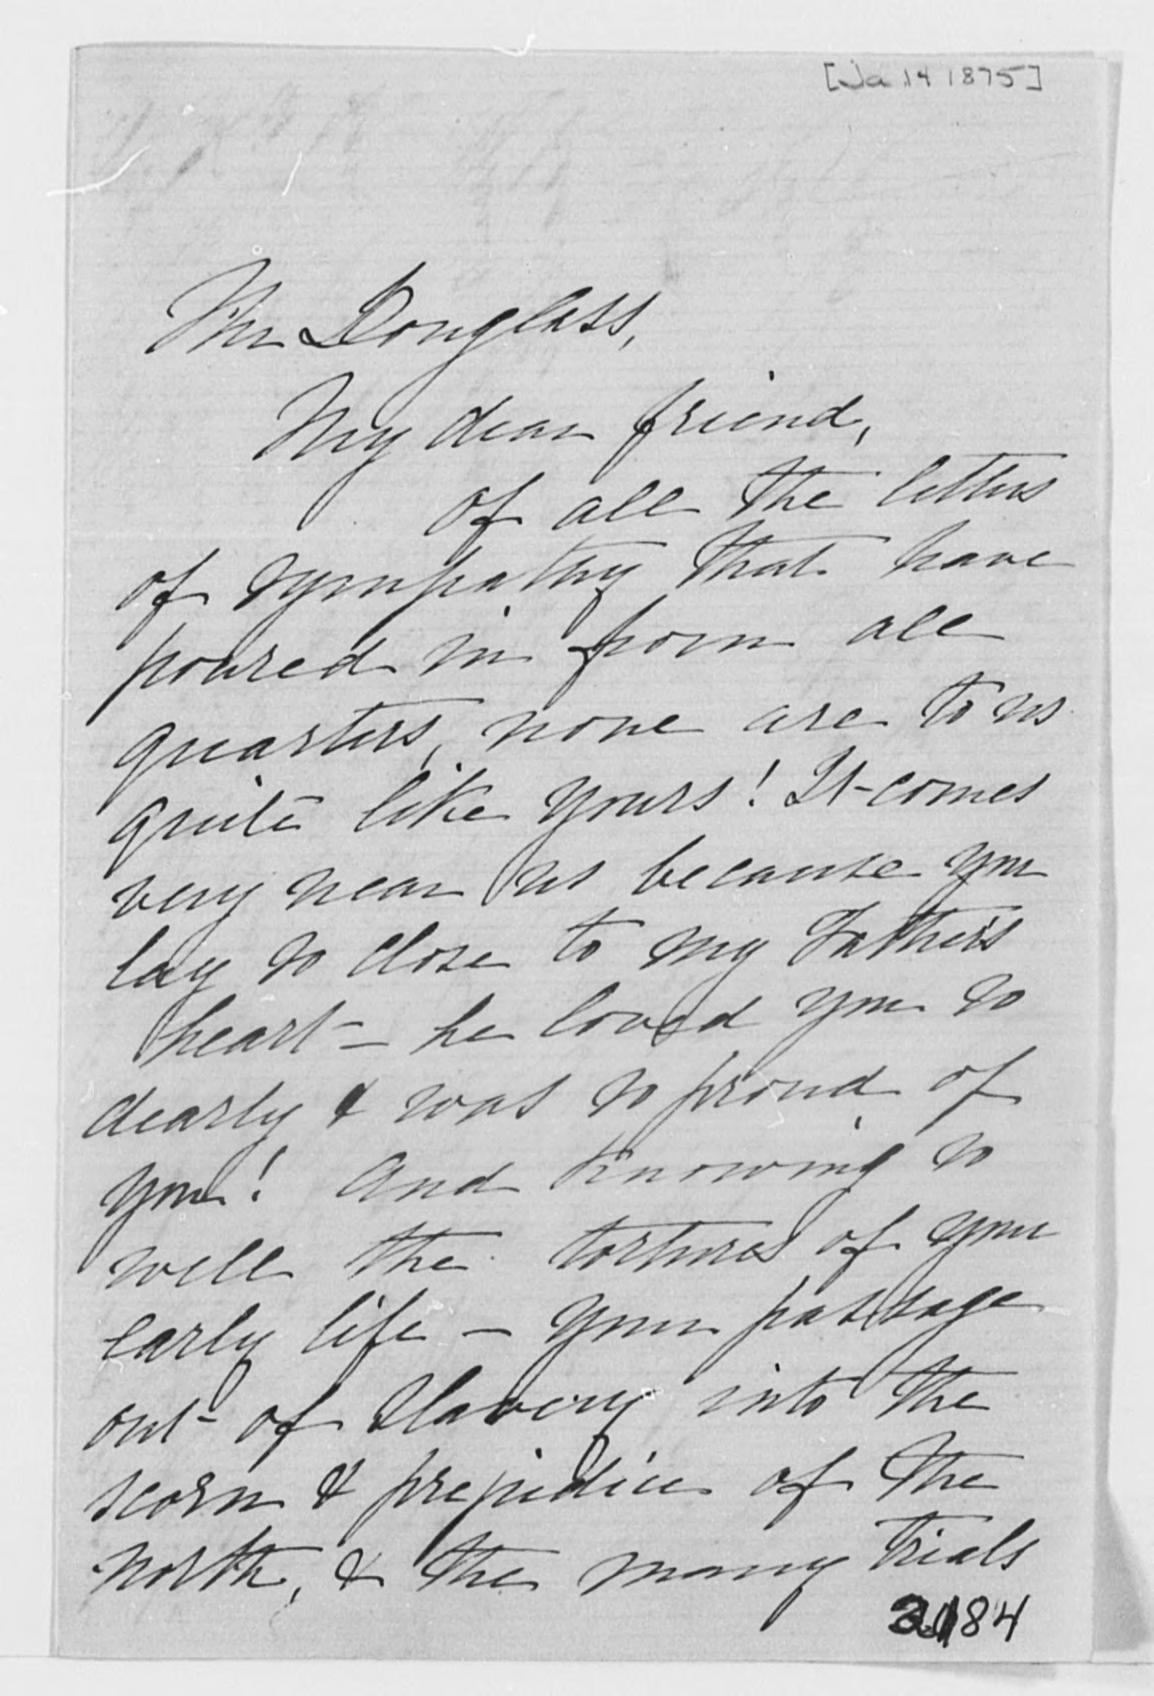 [Ja 14 1875]
Mr Douglass,
My dear friend,
Of all the letters
of sympathy that have
poured in from all
quarters, none are to us
quite like yours! It comes
very near us because you
lay so close to my Father's
heart – he loved you so
dearly & was so proud of
you! And knowing so
well the tortures of your
early life – your passage
out of Slavery into the
scorn & prejudice of the
north, & the many trials
84